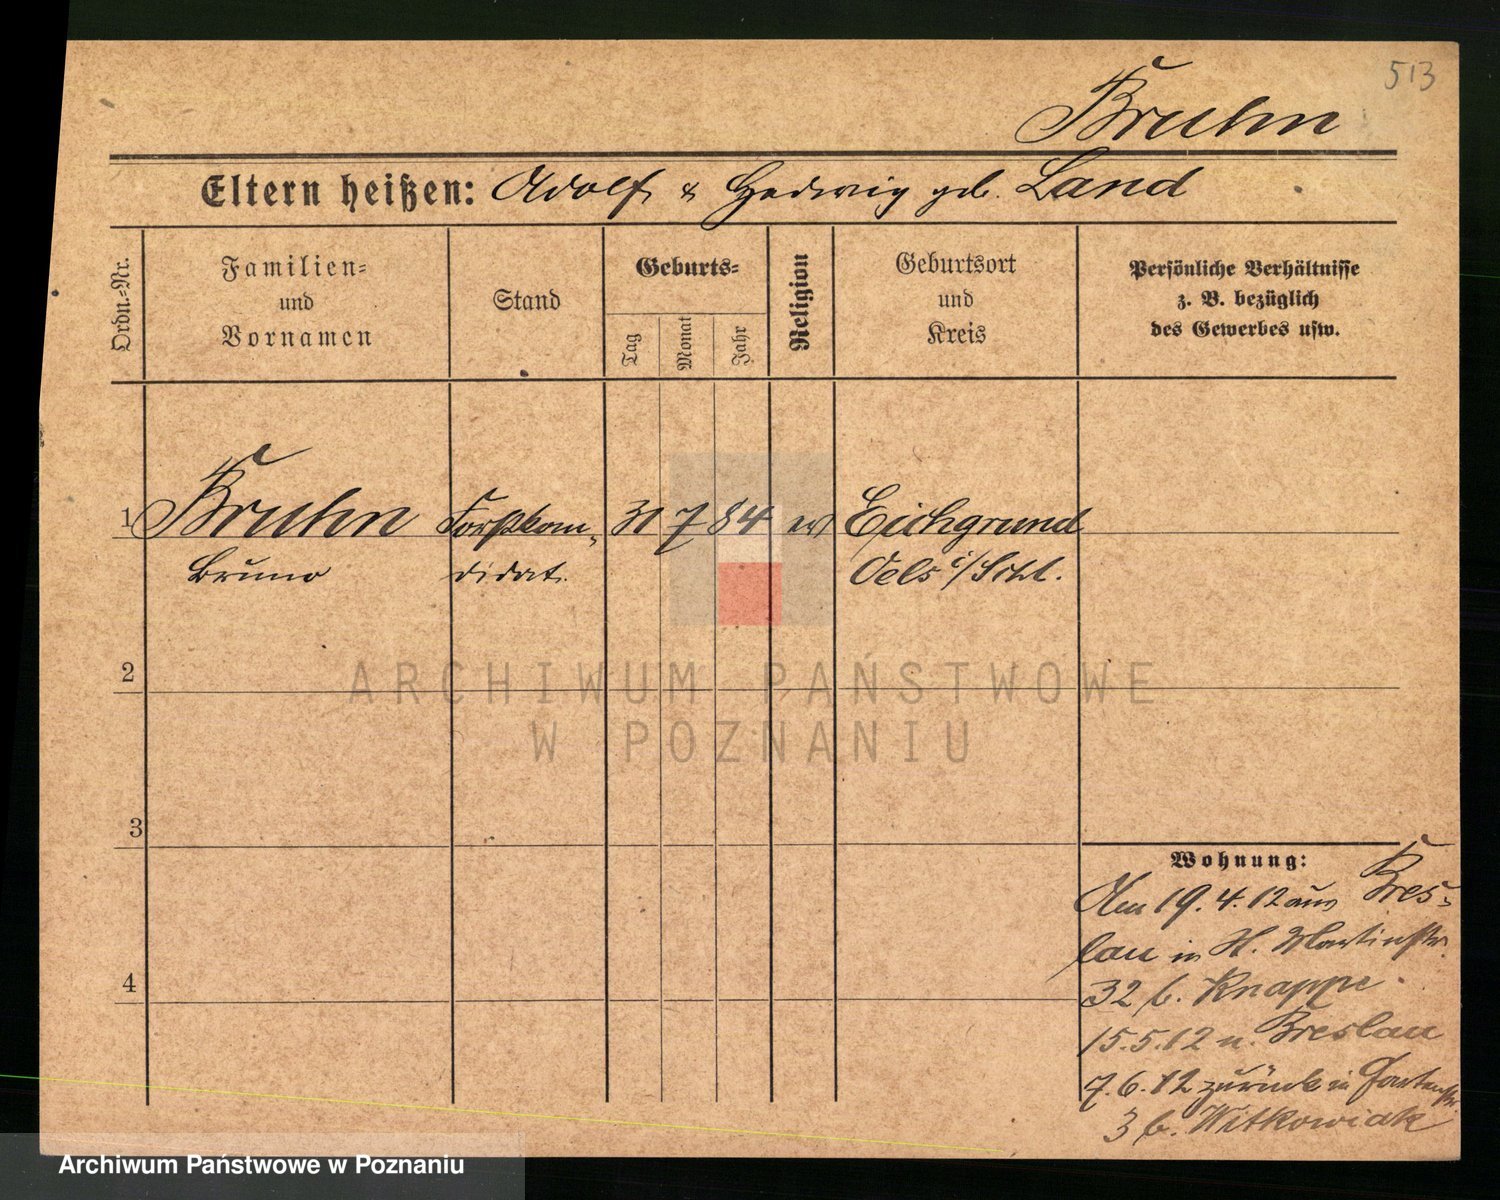 513
Bruhn
Eltern heißen: Adolf & Hedwig geb. Land
Ordn.-Nr.
Familien-
und
Vornamen
Stand
Geburts-
Tag
Monat
Jahr
Religion
Geburtsort
und
Kreis
Persönliche Verhältnisse
z. B. bezüglich
des Gewerbes usw.
1 Bruhn Forstkan- 31 7 84 ev Eichgrund
Bruno didat. Oels i/Schl.
2
3
4
Wohnung:
Am 19.4.12 aus Bres-
lau in St. Martinstr.
32 b. Knappe
15.5.12 n. Breslau
7.6.12 zurück in Gartenstr.
3 b. Witkowiak
ARCHIWUM PAŃSTWOWE
W POZNANIU
Archiwum Państwowe w Poznaniu